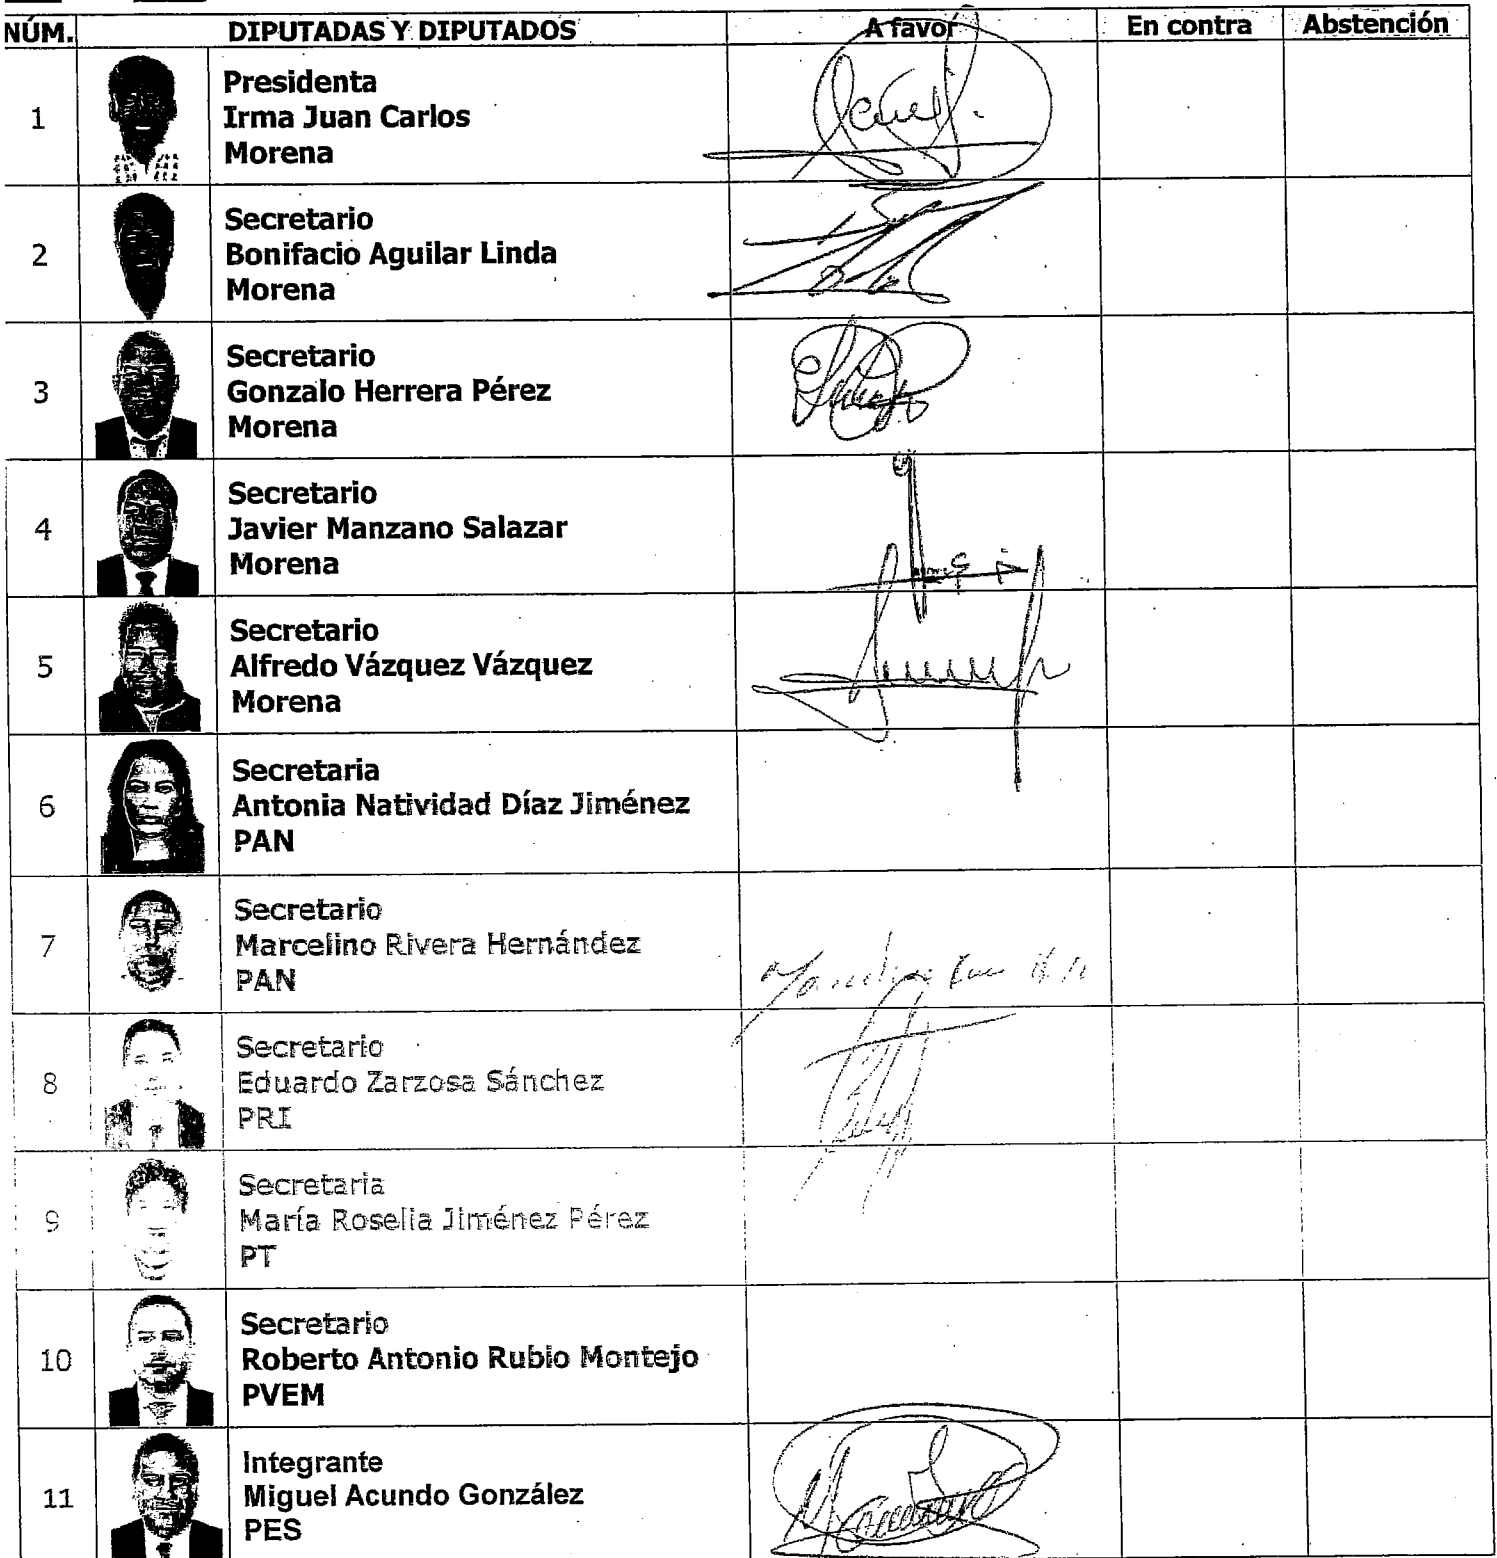 NÚM. DIPUTADAS Y DIPUTADOS A favor En contra Abstención
1
Presidenta
Irma Juan Carlos
Morena
2
Secretario
Bonifacio Aguilar Linda
Morena
3
Secretario
Gonzalo Herrera Pérez
Morena
4
Secretario
Javier Manzano Salazar
Morena
5
Secretario
Alfredo Vázquez Vázquez
Morena
6
Secretaria
Antonia Natividad Díaz Jiménez
PAN
7
Secretario
Marcelino Rivera Hernández
PAN
8
Secretario
Eduardo Zarzosa Sánchez
PRI
9
Secretaria
María Roselia Jiménez Pérez
PT
10
Secretario
Roberto Antonio Rubio Montejo
PVEM
11
Integrante
Miguel Acundo González
PES